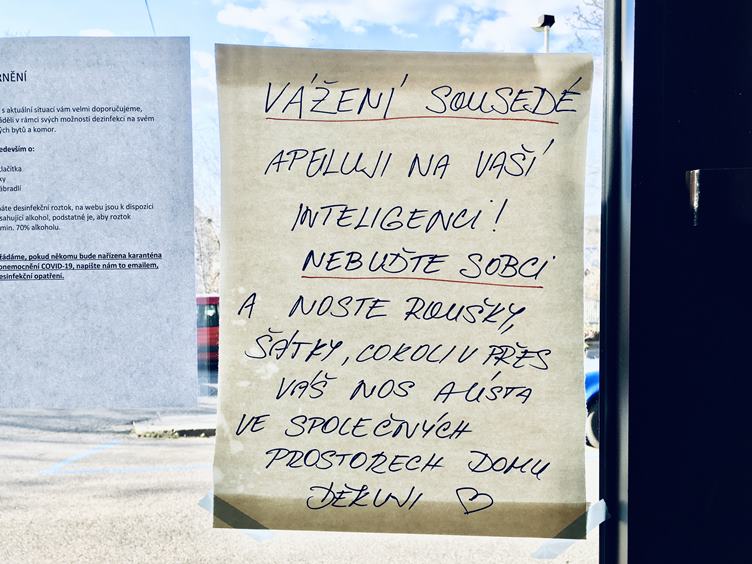 RNĚNÍ
s aktuální situací vám velmi doporučujeme,
áděli v rámci svých možností dezinfekci na svém
ých bytů a komor.
edevším o:
lačítka
ky
ábradlí
áte desinfekční roztok, na webu jsou k dispozici
sahující alkohol, podstatné je, aby roztok
min. 70% alkoholu.
řádáme, pokud někomu bude nařízena karanténa
onemocnění COVID-19, napište nám to emailem,
esinfekční opatření.
VÁŽENÍ SOUSEDÉ
APELUJI NA VAŠÍ
INTELIGENCI!
NEBUĎTE SOBCI
A NOSTE ROUŠKY,
ŠÁTKY, COKOLIV PŘES
VÁŠ NOS A ÚSTA
VE SPOLEČNÝCH
PROSTORECH DOMU
DĚKUJI ♡